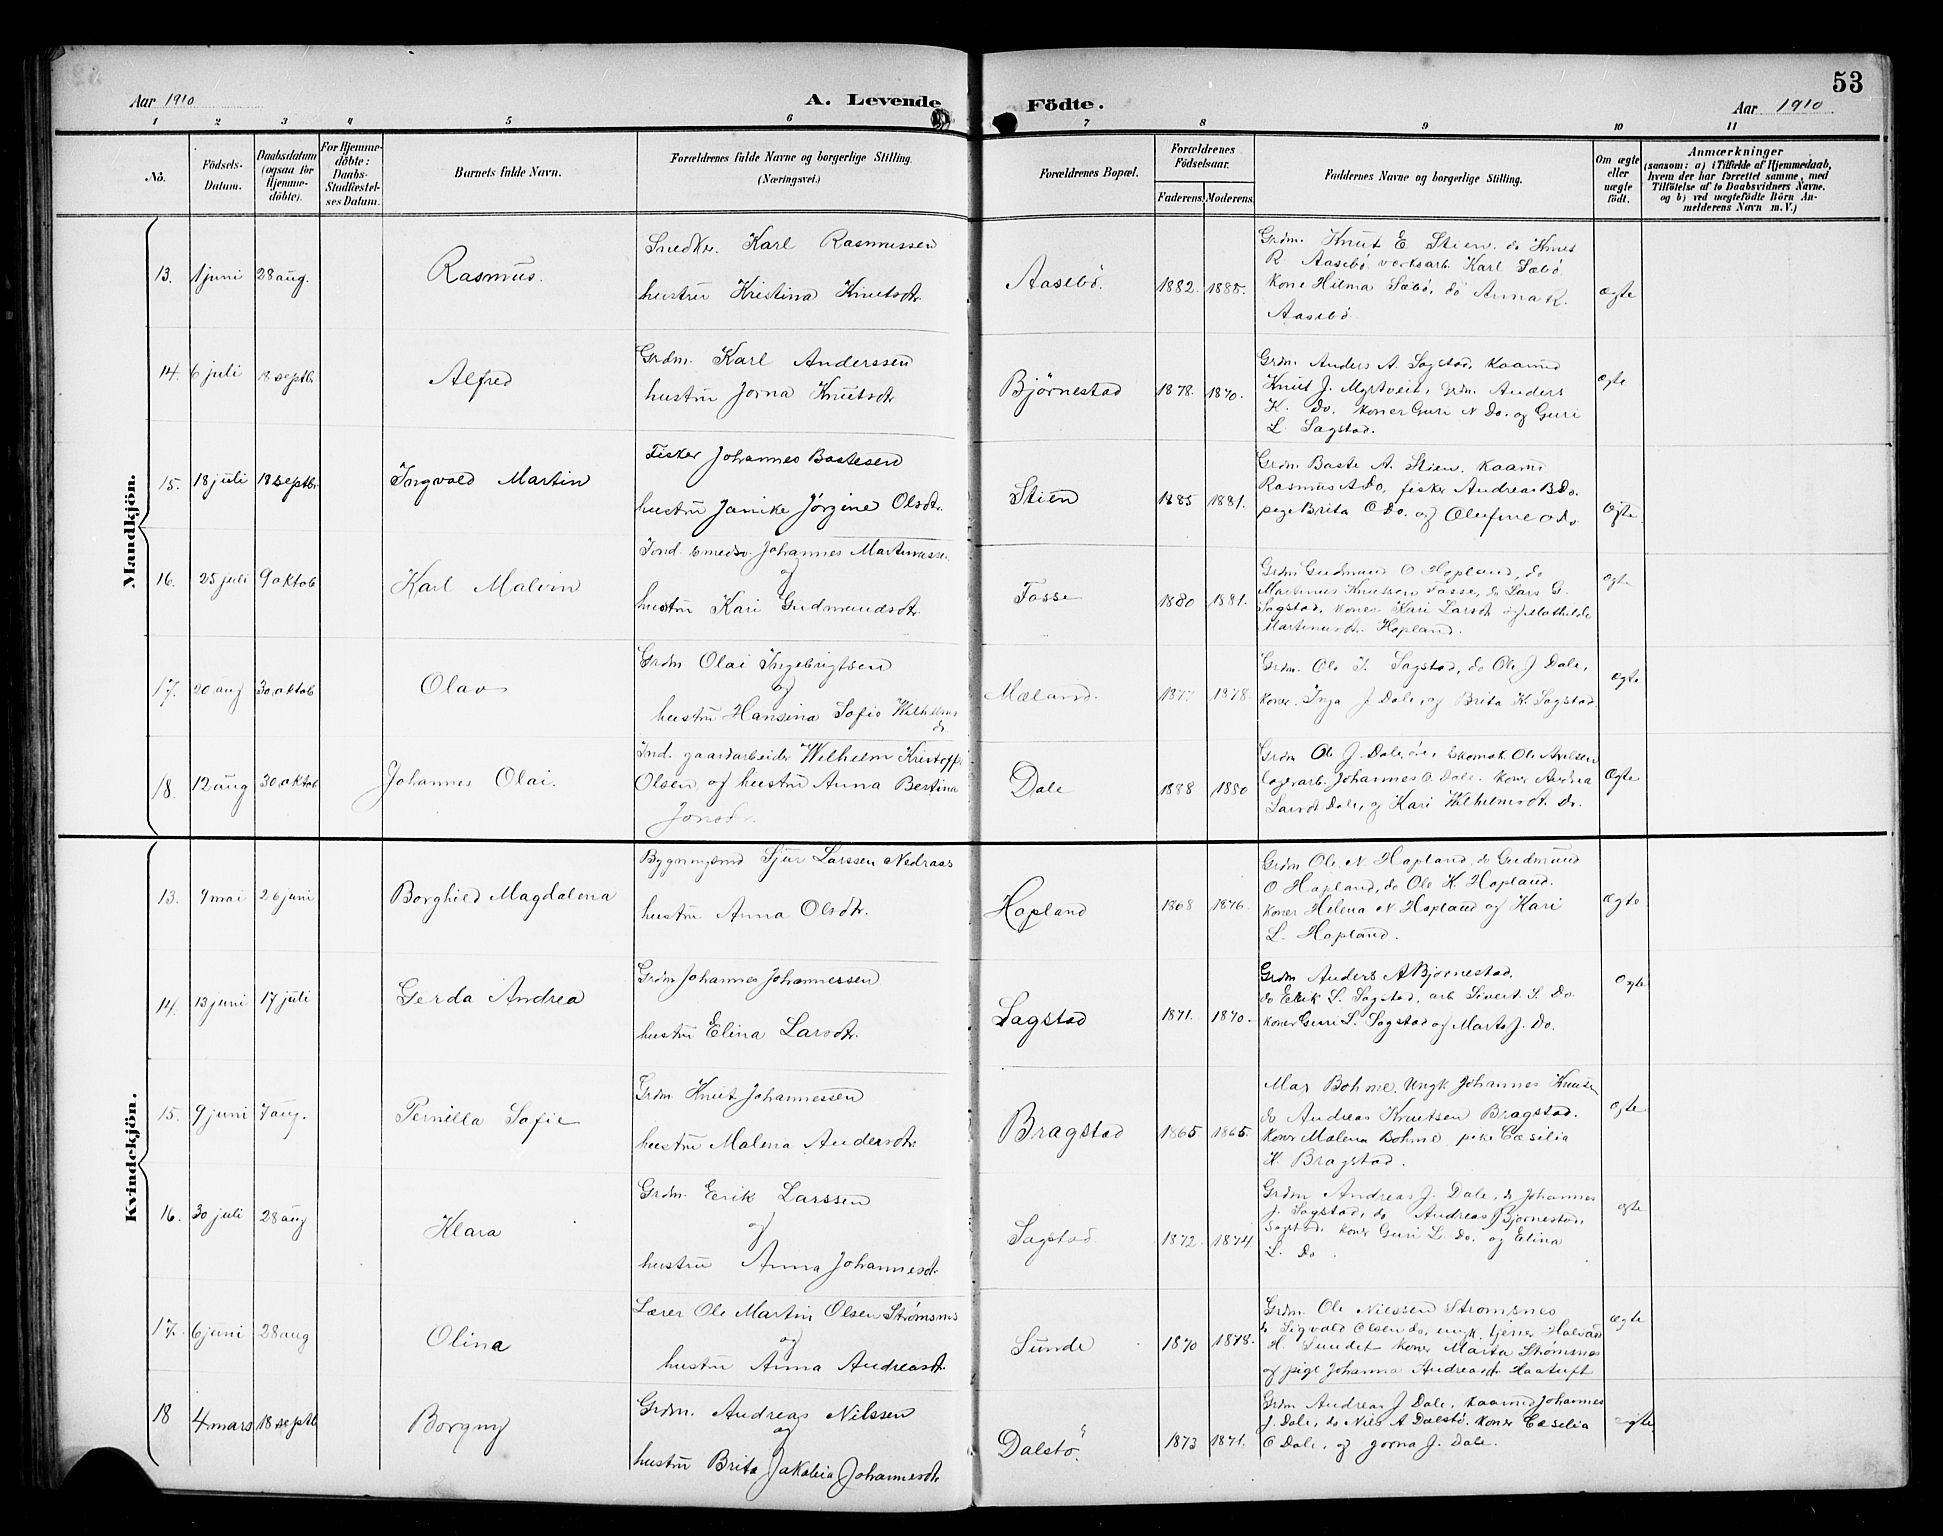 53
Aar 1910
A. Levende
Födte.
Aar 1910
1 2 3 4 5 6 7 8 9 10 11
No.
Födsels-
Datum.
Daabsdatum
(ogsaa för
Hjemme-
döbte).
For Hjemme-
döbte:
Daabs-
Stadfæstel-
ses Datum.
Barnets fulde Navn.
Forældrenes fulde Navne og borgerlige Stilling.
(Næringsvei.)
Forældrenes Bopæl.
Forældrenes
Födselsaar.
Faderens. Moderens.
Faddernes Navne og borgerlige Stilling.
Om ægte
eller
uægte
födt.
Anmærkninger
(saasom: a) i Tilfælde af Hjemmedaab,
hvem der har forrettet samme, med
Tilföielse af to Daabsvidners Navne,
og b) ved uægtefödte Börn An-
melderens Navn m. V.)
Mandkjön.
13. 1 juni 28 aug. Rasmus.
Snedker. Karl Rasmussen
hustru Kristina Knutsdtr.
Aasebö. 1882. 1885.
Grdm. Knut E Stien. do Knut
R Aasebö. verksarb. Karl Sæbö.
Kone Hilma Sæbö, do Anna R.
Aasebö.
ægte
14. 6 juli 18 septbr Alfred
Grdm. Karl Anderssen
hustru Jorna Knutsdtr
Björnestad 1878. 1870.
Grdm. Anders A. Sagstad, Kaarmd
Knut J. Myrtveit, Grdm. Anders
K. Do. Koner Guri N Do. og Guri
L. Sagstad.
ægte
15. 18 juli 18 septbr Ingvald Martin
Fisker Johannes Bastesen
hustru Janike Jörgine Olsdtr.
Stien 1885 1881.
Grdm. Baste A. Stien, Kaarmd
Rasmus A Do, fisker Andreas B Do.
pige Brita O Do. og Olufine O Do.
Ægte.
16. 25 juli 9 oktob Karl Malvin
Ind. Smedsv. Johannes Martinussen
og
hustru Kari Gudmundsdtr.
Fosse 1880 1881.
Grdm Gudmund O Hopland, do
Martinus Knutson Fosse, do Lars G.
Sagstad, Koner Kari Larsdtr og Mathilde
Martinusdtr. Hopland.
ægte
17. 20 aug 30. oktob Olav
Grdm Olai Ingebrigtsen
og
hustru Hansina Sofie Wilhelms
dr
Mæland. 1877 1878.
Grdm. Ole I. Sagstad, do Ole J Dale,
Koner. Inga J Dale, og Brita K. Sagstad.
ægte
18. 12 aug 30. oktob Johannes Olai.
Ind. gaardarbeider Wilhelm Kristoffer
Olsen, og hustru Anna Bertina
Jonsdtr.
Dale 1888 1880
Grdm Ole J. Dale, Skomak. Ole Axelsen
Johannes O. Dale. Koner Andrea
Larsdt Dale, og Kari Wilhelmsdt. Do.
Ægte
Kvindekjön.
13. 9 mai 26 juni Borghild Magdalena
Bygningsmd Sjur Larssen Nedraas
hustru Anna Olsdtr.
Hopland 1868 1876.
Grdm Ole N. Hopland, do Gudmund
O Hopland, do Ole K. Hopland.
Koner Helena N Hopland og Kari
L. Hopland.
Ægte
14. 13 juni 17 juli Gerda Andrea
Grdm Johannes Johannessen
hustru Elina Larsdtr.
Sagstad 1871. 1870.
Grdm Anders A Bjornestad.
do Erik L. Sagstad, arb Sivert S. Do.
Koner Guri L. Sagstad og Marta J. Do.
Ægte
15. 9 juni 7 aug. Pernilla Sofie
Grdm Knut Johannessen
hustru Malena Andersdtr.
Bragstad 1865 1865.
Mas Bohme. Ungk Johannes Knutsen
do Andreas Knutsen Bragstad.
Koner Malena Bohme pike Cæsilia
K. Bragstad.
ægte
16. 30 juli 28 aug Klara
Grdm. Erik Larssen
og
hustru Anna Johannesdt.
Sagstad. 1872. 1874
Grdm Andreas J. Dale, do Johannes
J. Sagstad, do Andreas J Bjornestad,
Sagstad. Koner Guri L. Do. og Elina
L. Do.
ægte
17. 6 juni 28 aug Olina
Lærer Ole Martin Olsen Strømsnes
og
hustru Anna Andreasdt.
Sunde 1870 1878.
Grdm. Ole Nilssen Strømsnes
do Sigvald Olsen do, ungk. tjener Halvar
H. Sundet Koner Marta Strømsnes
og pige Johanna Andreasdt. Haatuft
ægte
18 4 mars 18 septb Borgny
Grdm. Andreas Nilssen
og
hustru Brita Jakobia Johannesdt.
Dalstö. 1873 1871.
Grdm Andreas J Dale, Kaarmd Johannes
J. Dale, do Nils A Dalstö. Koner Cæselia
O Dale, og Jorna J. Dale.
ægte